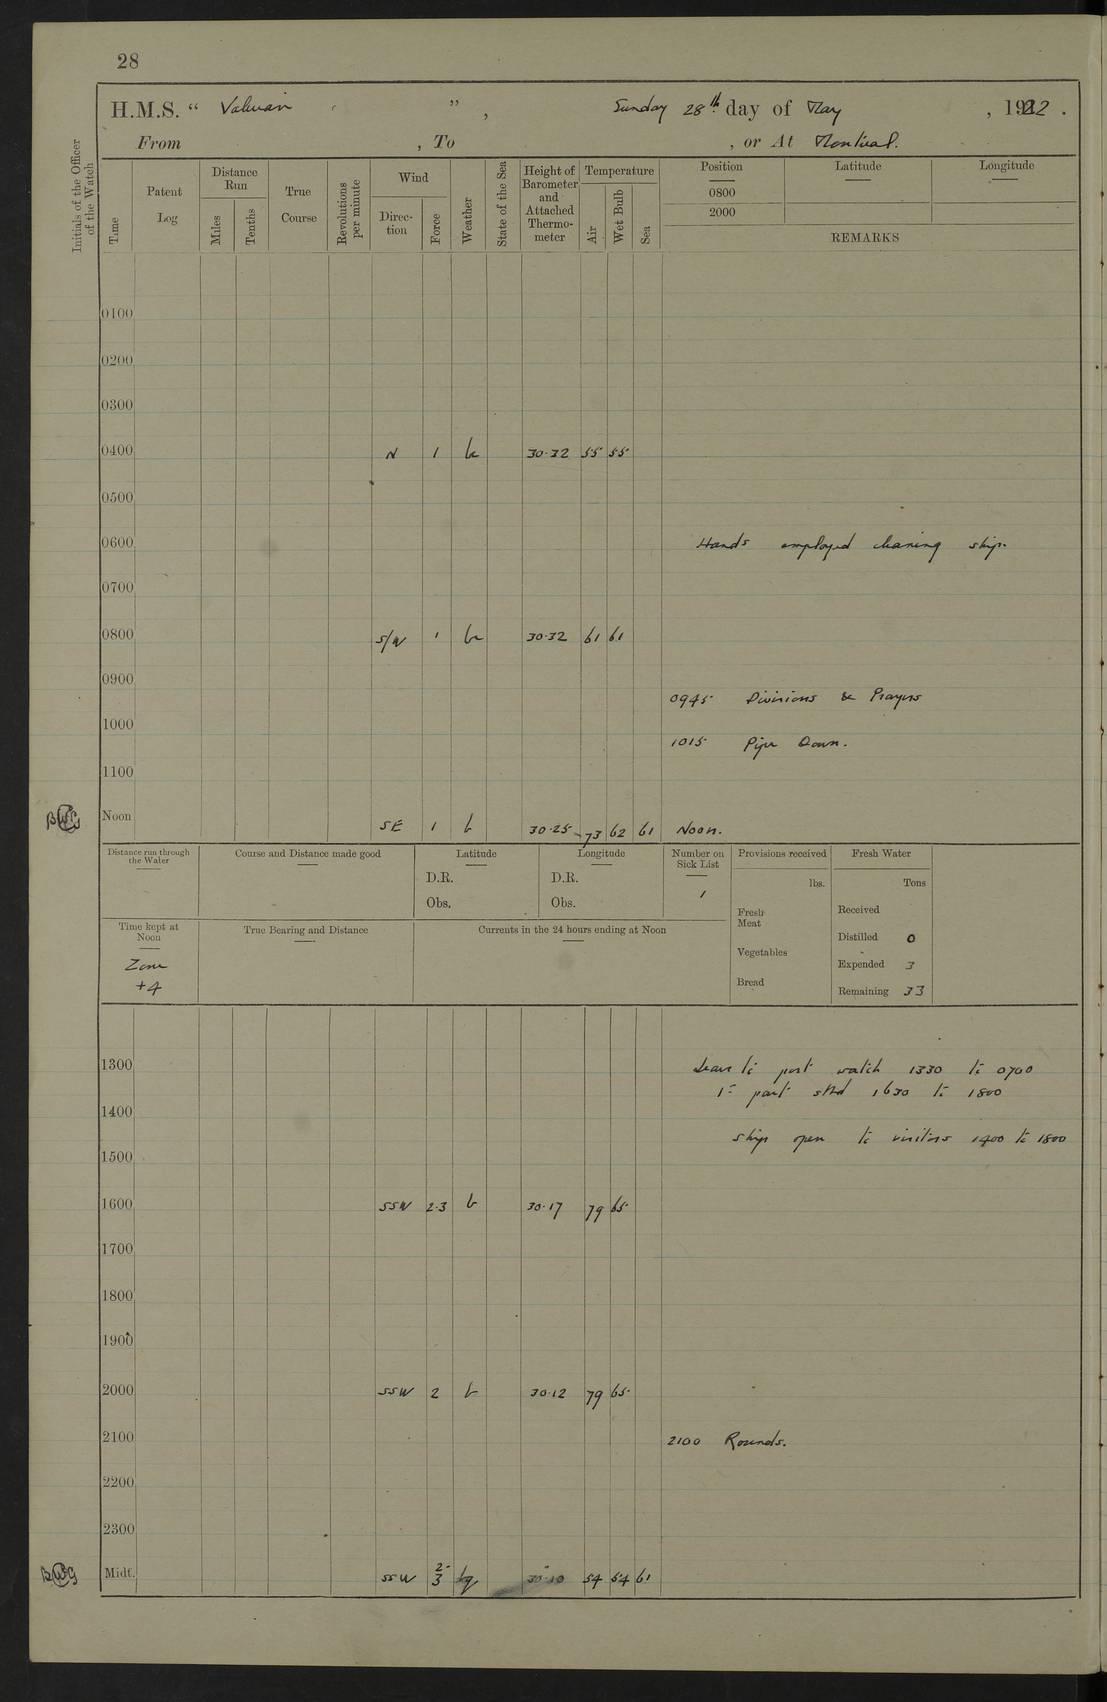 28
H.M.S. “ Valerian ”, Sunday 28th day of May , 1922 .
From , To , or At Montreal.
Initials of the Officer of the Watch
Time
Patent Log
Distance Run
Miles
Tenths
True Course
Revolutions per minute
Wind
Direc-tion
Force
Weather
State of the Sea
Height of Barometer and Attached Thermo-meter
Temperature
Air
Wet Bulb
Sea
Position Latitude Longitude
0800
2000
REMARKS
0100
0200
0300
0400 N 1 bc 30.32 55 55
0500
0600 Hands employed cleaning ship.
0700
0800 S/W 1 bc 30.32 61 61
0900
0945 Divisions & Prayers
1000
1015 Pipe Down.
1100
Noon SE 1 b 30.25 73 62 61 Noon.
Distance run through the Water
Course and Distance made good
Latitude
D.R.
Obs.
Longitude
D.R.
Obs.
Number on Sick List
1
Provisions received
lbs.
Fresh Meat
Vegetables
Bread
Fresh Water
Tons
Received
Distilled 0
Expended 3
Remaining 33
Time kept at Noon
Zone
+4
True Bearing and Distance
Currents in the 24 hours ending at Noon
1300 Leave to port watch 1330 to 0700
1st part stbd 1630 to 1800
1400
Ship open to visitors 1400 to 1800
1500
1600 SSW 2.3 b 30.17 79 65
1700
1800
1900
2000 SSW 2 b 30.12 79 65
2100 2100 Rounds.
2200
2300
Midt. SSW 2-3 bq 30.10 54 54 61